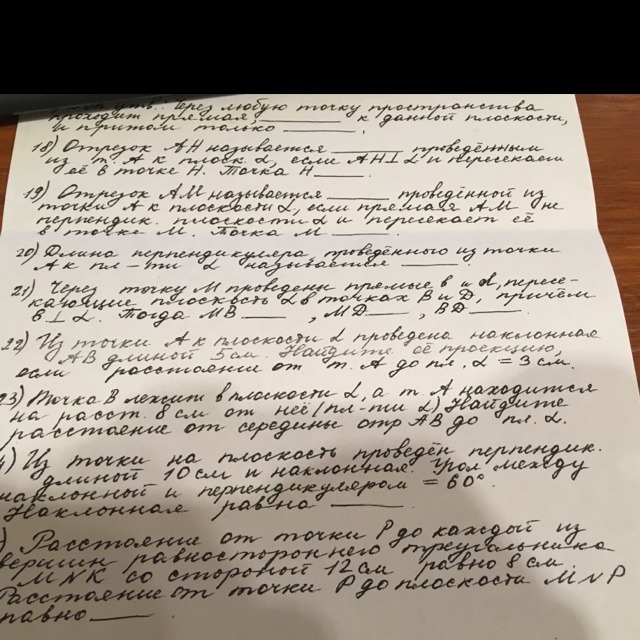 утв. Через любую точку пространства
проходит прямая, ______ к данной плоскости,
и притом только ______.
18) Отрезок АН называется ______ проведённым
из т. А к плоск α, если АН⊥α и пересекает
её в точке Н. Точка Н ____.
19) Отрезок АМ называется ____ проведённой из
точки А к плоскости α, если прямая АМ не
перпендик. плоскости α и пересекает её
в точке М. Точка М ____.
20) Длина перпендикуляра, проведённого из точки
А к пл-ти α называется ____.
21) Через точку М проведены прямые в и d, пересе-
кающие плоскость α в точках В и D, причём
в⊥α. Тогда МВ ____, МD ____, ВD ____.
22) Из точки А к плоскости α проведена наклонная
АВ длиной 5см. Найдите её проекцию,
если расстояние от т. А до пл. α = 3 см.
23) Точка В лежит в плоскости α, а т. А находится
на расст. 8 см от неё (пл-ти α) Найдите
расстояние от середины отр АВ до пл. α.
4) Из точки на плоскость проведён перпендик.
длиной 10см и наклонная. Угол между
наклонной и перпендикуляром = 60°.
Наклонная равна ____
) Расстояние от точки Р до каждой из
вершин равностороннего треугольника
MNK со стороной 12см равно 8 см.
Расстояние от точки Р до плоскости MNP
равно ____